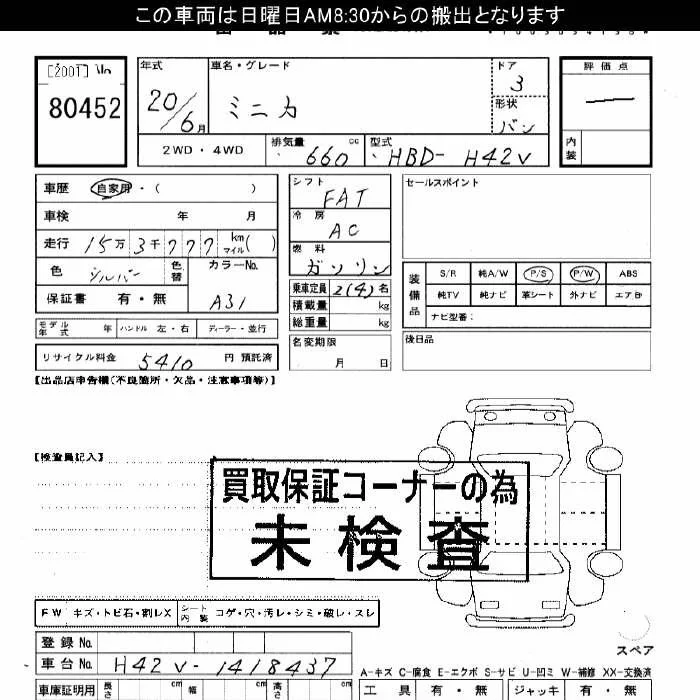 この車両は日曜日AM8:30からの搬出となります
[2001] No
80452
年式 20/6月
車名・グレード ミニカ
ドア 3
形状 バン
評価点
内装
2WD・4WD
排気量 660 cc
型式 HBD-H42V
車歴 自家用・( )
車検 年 月
走行 15万3千777 km マイル( )
色 シルバー 色替 カラーNo. A31
保証書 有・無
シフト FAT
冷房 AC
燃料 ガソリン
乗車定員 2(4)名
積載量 kg
総重量 kg
セールスポイント
装備品 S/R 純A/W P/S P/W ABS
純TV 純ナビ 革シート 外ナビ エアB
ナビ型番:
モデル年式 年 ハンドル 左・右 ディーラー・並行
名変期限 月 日
後日品
リサイクル料金 5410 円 預託済
【出品店申告欄(不良箇所・欠品・注意事項等)】
【検査員記入】
買取保証コーナーの為
未検査
FW キズ・トビ石・割レX シート内装 コゲ・穴・汚レ・シミ・破レ・スレ
登録No.
車台No. H42V-1418437
スペア
A-キズ C-腐食 E-エクボ S-サビ U-凹ミ W-補修 XX-交換済
車庫証明用 長さ cm 幅 cm 高さ cm
工具 有・無 ジャッキ 有・無